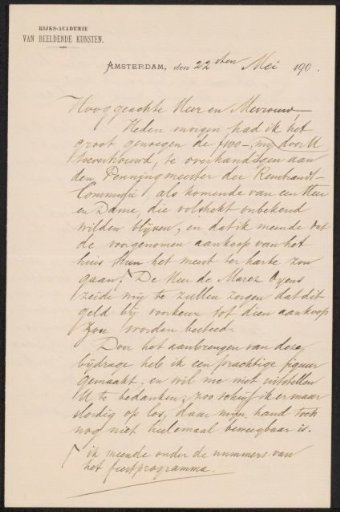 RIJKS-ACADEMIE
VAN BEELDENDE KUNSTEN.
AMSTERDAM, den 22sten Mei 190.
Hooggeachte Heer en Mevrouw,
Heden morgen had ik het
groot genoegen de f 100-, mij door U
toevertrouwd, te overhandigen aan
den Penningmeester der Rembrandt-
Commissie, als komende van een Heer
en Dame, die volstrekt onbekend
wilden blijven, en dat ik meende dat
de voorgenomen aankoop van het
huis Hun het meest ter harte zou
gaan. De Heer de Marez Oyens
zeide mij te zullen zorgen dat dit
geld bij voorkeur tot dien aankoop
zou worden besteed.
Door het aanbrengen van deze
bijdrage heb ik een prachtige figuur
gemaakt, en wil me niet
U te bedanken, schrijf ik er maar
slordig op los, daar mijn hand toch
nog niet heelemaal beweegbaar is.
ik meende onder de nummers van
het feestprogramma.